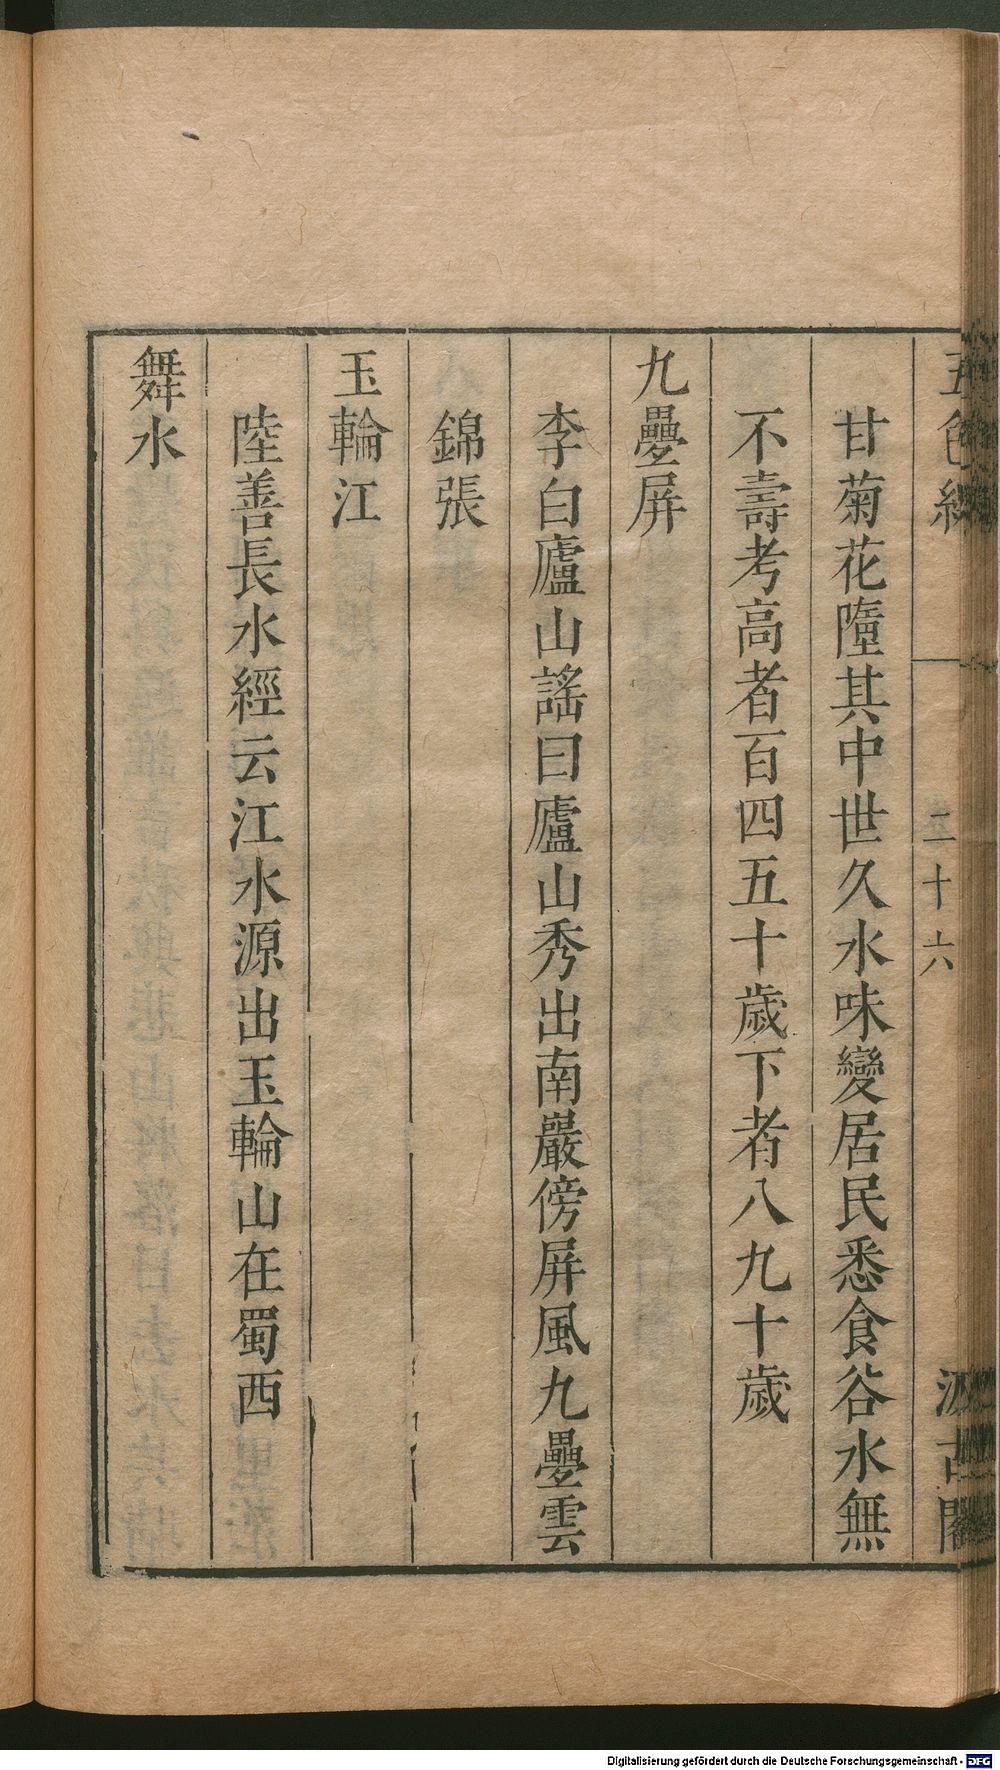 五色線
二十六
汲古閣
甘菊花墮其中世久水味變居民悉食谷水無
不壽考高者百四五十歲下者八九十歲
九疊屏
李白廬山謠曰廬山秀出南嚴傍屏風九疊雲
錦張
玉輪江
陸善長水經云江水源出玉輪山在蜀西
舞水
Digitalisierung gefördert durch die Deutsche Forschungsgemeinschaft - DFG